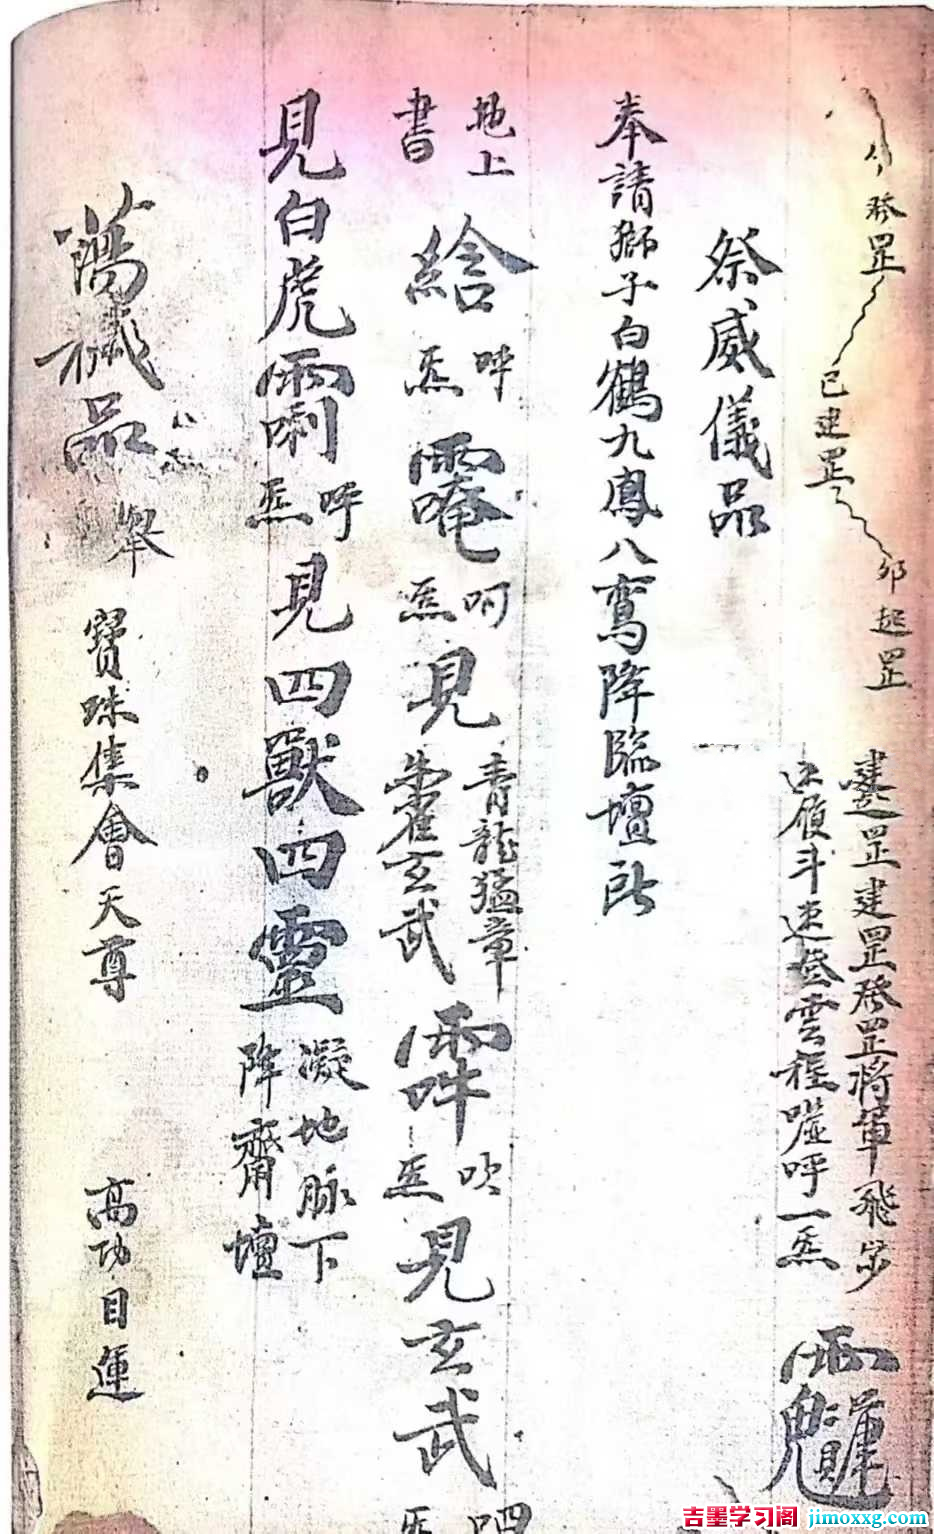 發罡
巳建罡
卯起罡
罡建罡發罡將軍飛步
履斗速登雲程噓呼一炁
祭威儀品
奉請獅子白鶴九鳳八鸞降臨壇所
地上
書
呼
炁
呵
炁
見
青龍猛章
朱雀玄武
吹
炁
見玄武
呬
炁
見白虎
呼
炁
見四獸四靈
凝地脉下
降齋壇
蕩穢品
舉
寶珠集會天尊
高功目運
吉墨学习阁 jimoxxg.com